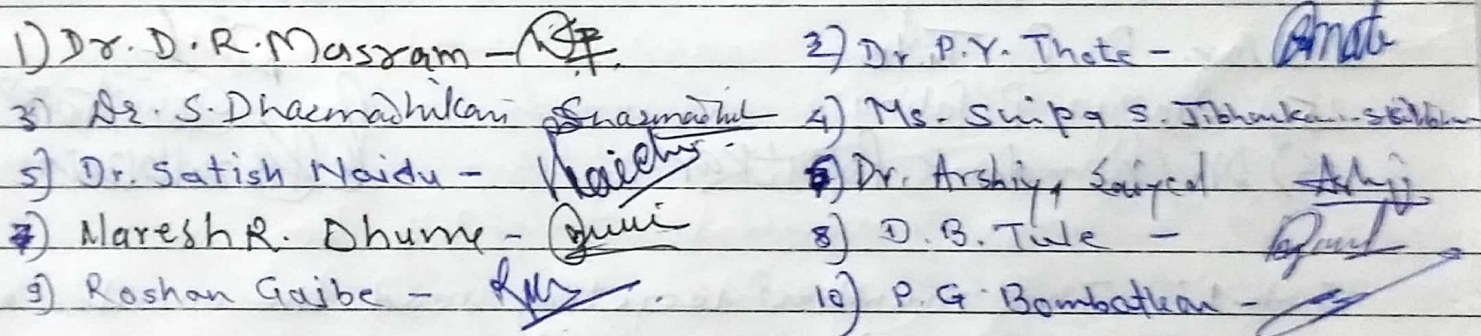 1) Dr. D. R. Masram - 2) Dr P. Y. Thote -
3) Dr. S. Dharmadhikari 4) Ms. Shilpa S. Jibhkate
5) Dr. Satish Naidu - Naidu 6) Dr. Arshiya Saiyed
7) Naresh R. Dhurve - 8) D. B. Tule -
9) Roshan Gajbe - 10) P. G. Bombatkar -